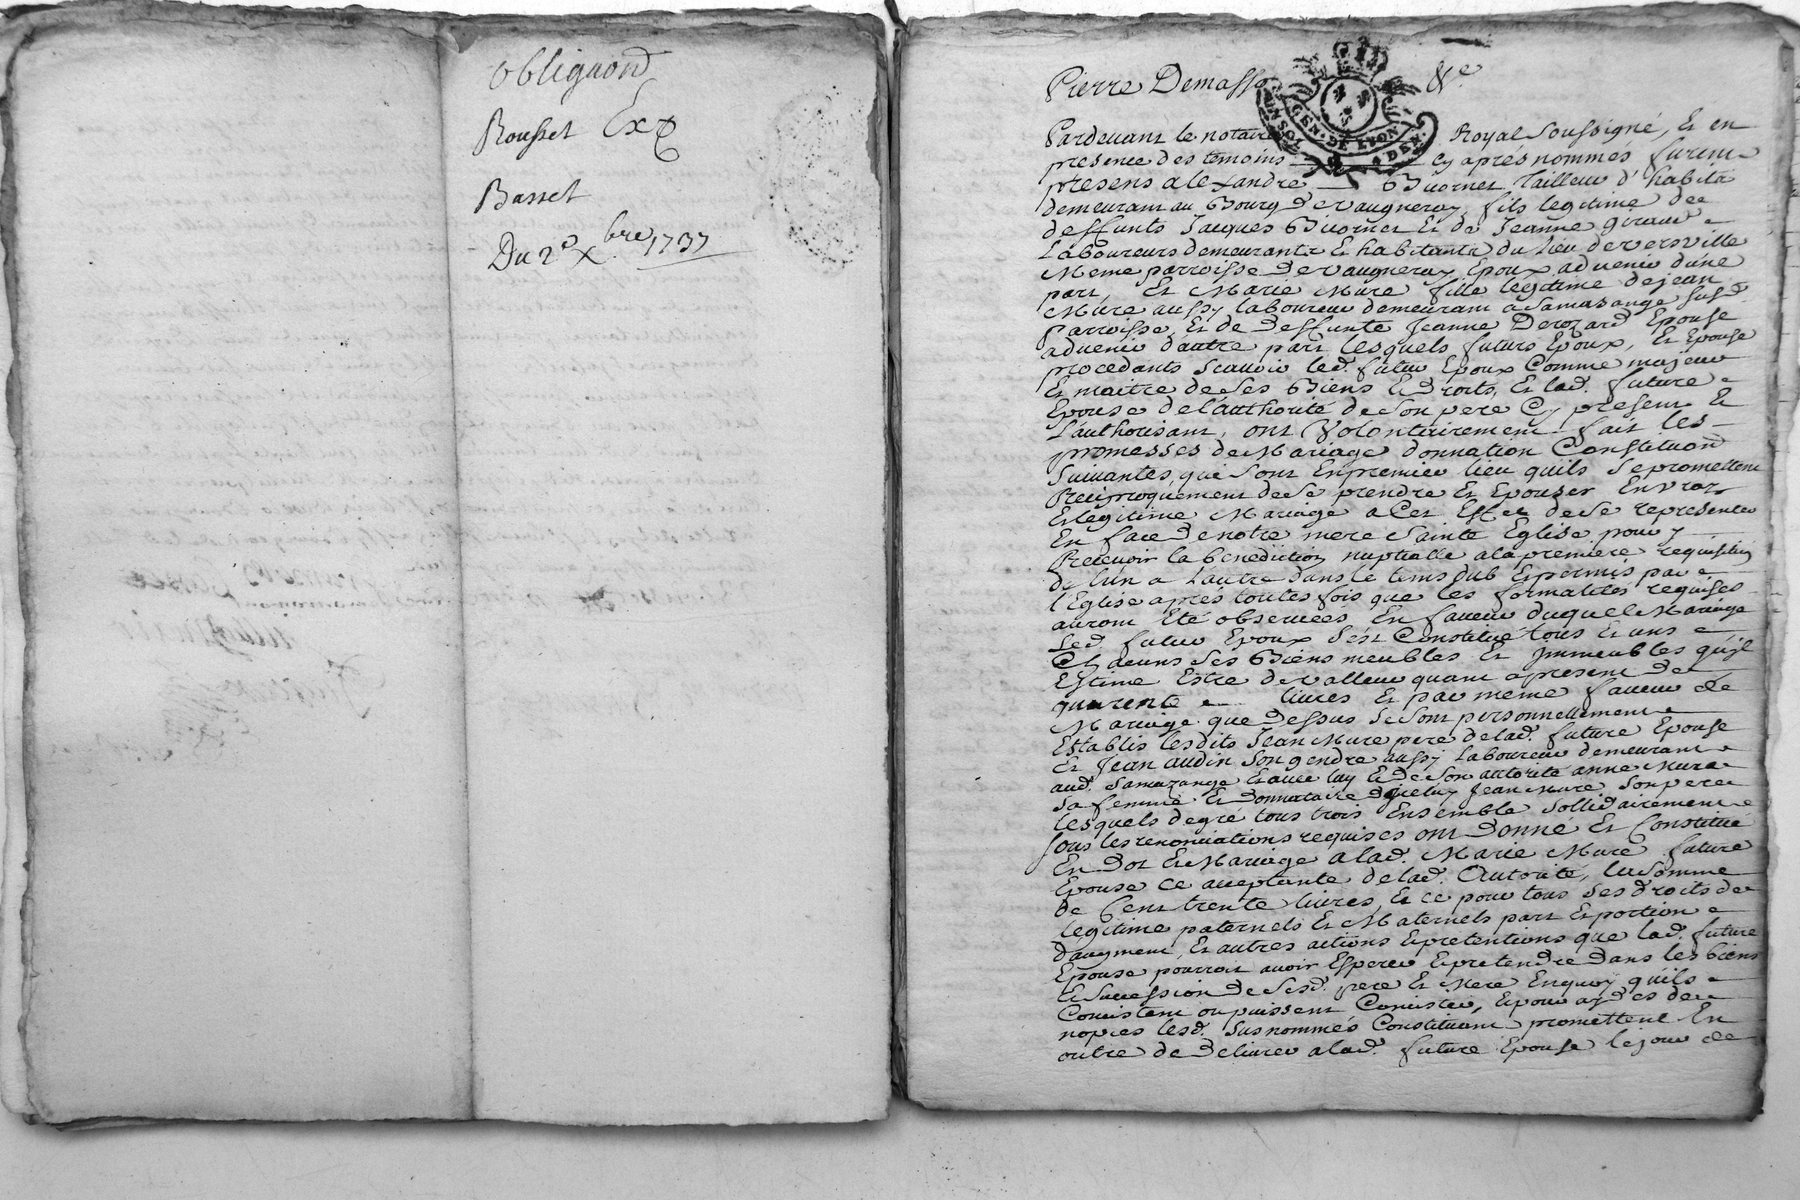 obligaon
Rousset Exp
Basset
Du 2e Xbre 1737
Pierre Demasso &ca
GEN. DE LYON
Pardevant le notaire Royal soussigné, Et en
presence des temoins cy aprés nommés furent
presens alexandre Buornet Tailleur d'habits
demeurant au Bourg de vaugneray, fils legitime de
deffunts Jacques Buornet Et de Jeanne giraud
Laboureurs demeurants Et habitants du lieu de versville
Meme parroisse de vaugneray Epoux advenir d'une
part, Et Marie Mure fille legitime de jean
Mure aussy laboureur demeurant a Samazange susd.
Parroisse, Et de deffunte Jeanne Derozard Epouse
advenir dautre part lesquels futurs Epoux, Et Epouse
procedants scavoir led. futur Epoux Comme majeur
Et maitre de ses Biens & Droits, Et lad. future
Epouse de l'authorité de son pere Cy present &
L'authorisant, ont Volontairement fait les
promesses de Mariage donnation Constituaon
suivantes, qui sont Enpremier lieu quils se promettent
Reciproquement de se prendre Et Epouser En vray
Et legitime Mariage a Cet Effet de se representer
En face de notre mere sainte Eglise pour y
Recevoir la benediction nuptialle a la premiere requisition
de lun a Lautre dans le tems dub Et permis par
l'Eglise aprés toutes fois que les formalites requises
auront Eté observées, En faveur duquel Mariage
Led. futur Epoux s'est Constitué tous Et uns
Chacuns ses Biens meubles Et Jmmeubles qu'jl
Estime Estre de valleur quant apresent de
quarente livres Et par meme faveur de
Mariage que dessus se sont personnellement
Establis lesdits Jean Mure pere de lad. future Epouse
Et Jean audin son gendre aussy Laboureur demeurant
aud. Samazange Et avec luy & de son autorité anne Mure
sa femme Et donnataire djceluy Jean Mure son pere
lesquels de gré tous trois Ensemble sollidairement
sous les renonciations requises ont Donné Et Constitué
En Dot Et Mariage a lad. Marie Mure future
Epouse ce acceptante de lad. Autorité, la somme
de Cent trente livres, Et ce pour tous ses droits de
legitime paternels Et Maternels part Et portion
daugment, Et autres actions Et pretentions que lad. future
Epouse pourroit avoir Esperer Et pretendre dans les biens
& succession de sesd. pere Et Mere En quoy qu'ils
Consistent ou puissent Consister, Et pour aydes de
nopces lesd. susnommés Constituant promettent En
outre de delivrer a lad. future Epouse le jour de